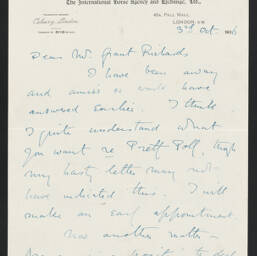 The International Horse Agency and Exchange, Ltd.,
45a, PALL MALL,
LONDON, S.W.
3rd Oct
Dear Mr. Grant Richards
I have been away
and amiss or would have
answered earlier. I think
I quite understand what
you want re Pretty Poll, though
my hasty letter may not
have indicated this. I will
make an early appointment.
Now another matter –